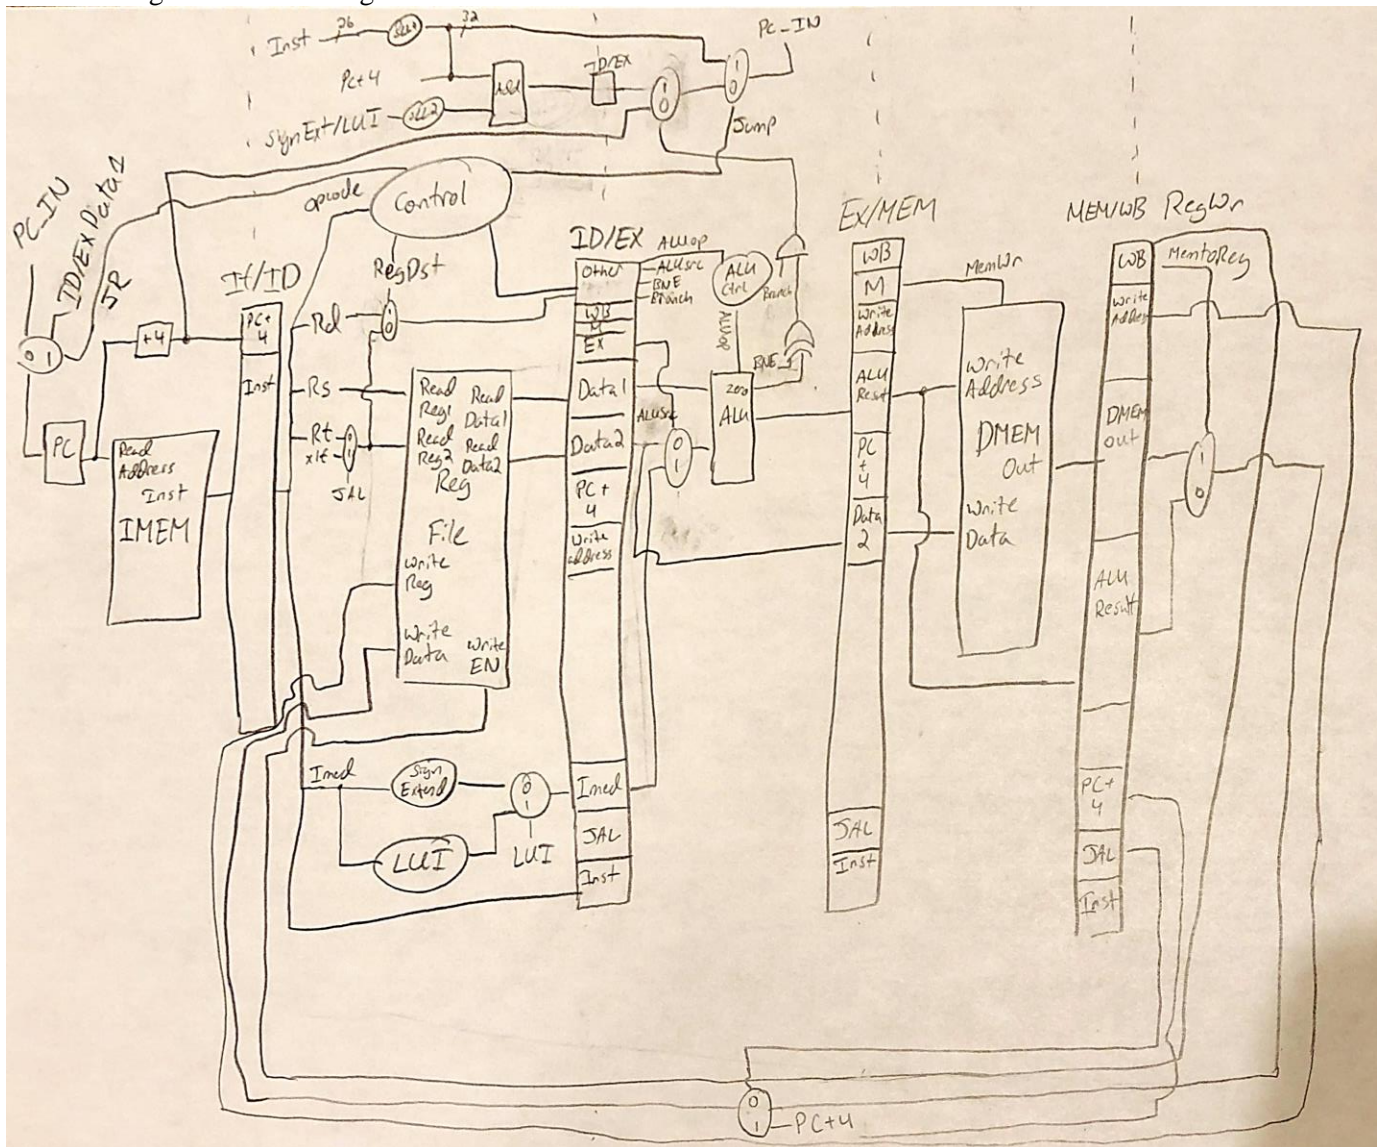 Inst 26 SLL2 32
PC_IN
PC+4
ALU
ID/EX
1
0
1
0
SignExt/LUI SLL2
Jump
PC_IN
ID/ExData1
JR
0
1
opcode
Control
If/ID
RegDst
+4
PC
PC+
4
Inst
Read
Address
Inst
IMEM
Rd
1
0
Rs
Rt
0
1
JAL
Read
Reg1
Read
Data1
Read
Reg2
Read
Data2
Reg
File
Write
Reg
Write
Data
Write
EN
Imed
Sign
Extend
LUI
0
1
LUI
ID/EX
Other
WB
M
EX
Data1
Data2
PC+
4
Write
address
Imed
JAL
Inst
ALUop
ALUsrc
BNE
Branch
ALU
Ctrl
ALUop
Branch
BNE
zero
ALU
ALUsrc
0
1
Ex/MEM
WB
M
Write
Address
ALU
Result
PC
+
4
Data
2
JAL
Inst
MemWr
Write
Address
DMEM
Out
Write
Data
MEM/WB
RegWr
WB
MemtoReg
Write
Address
DMEM
out
1
0
ALU
Result
PC+
4
JAL
Inst
0
1
PC+4